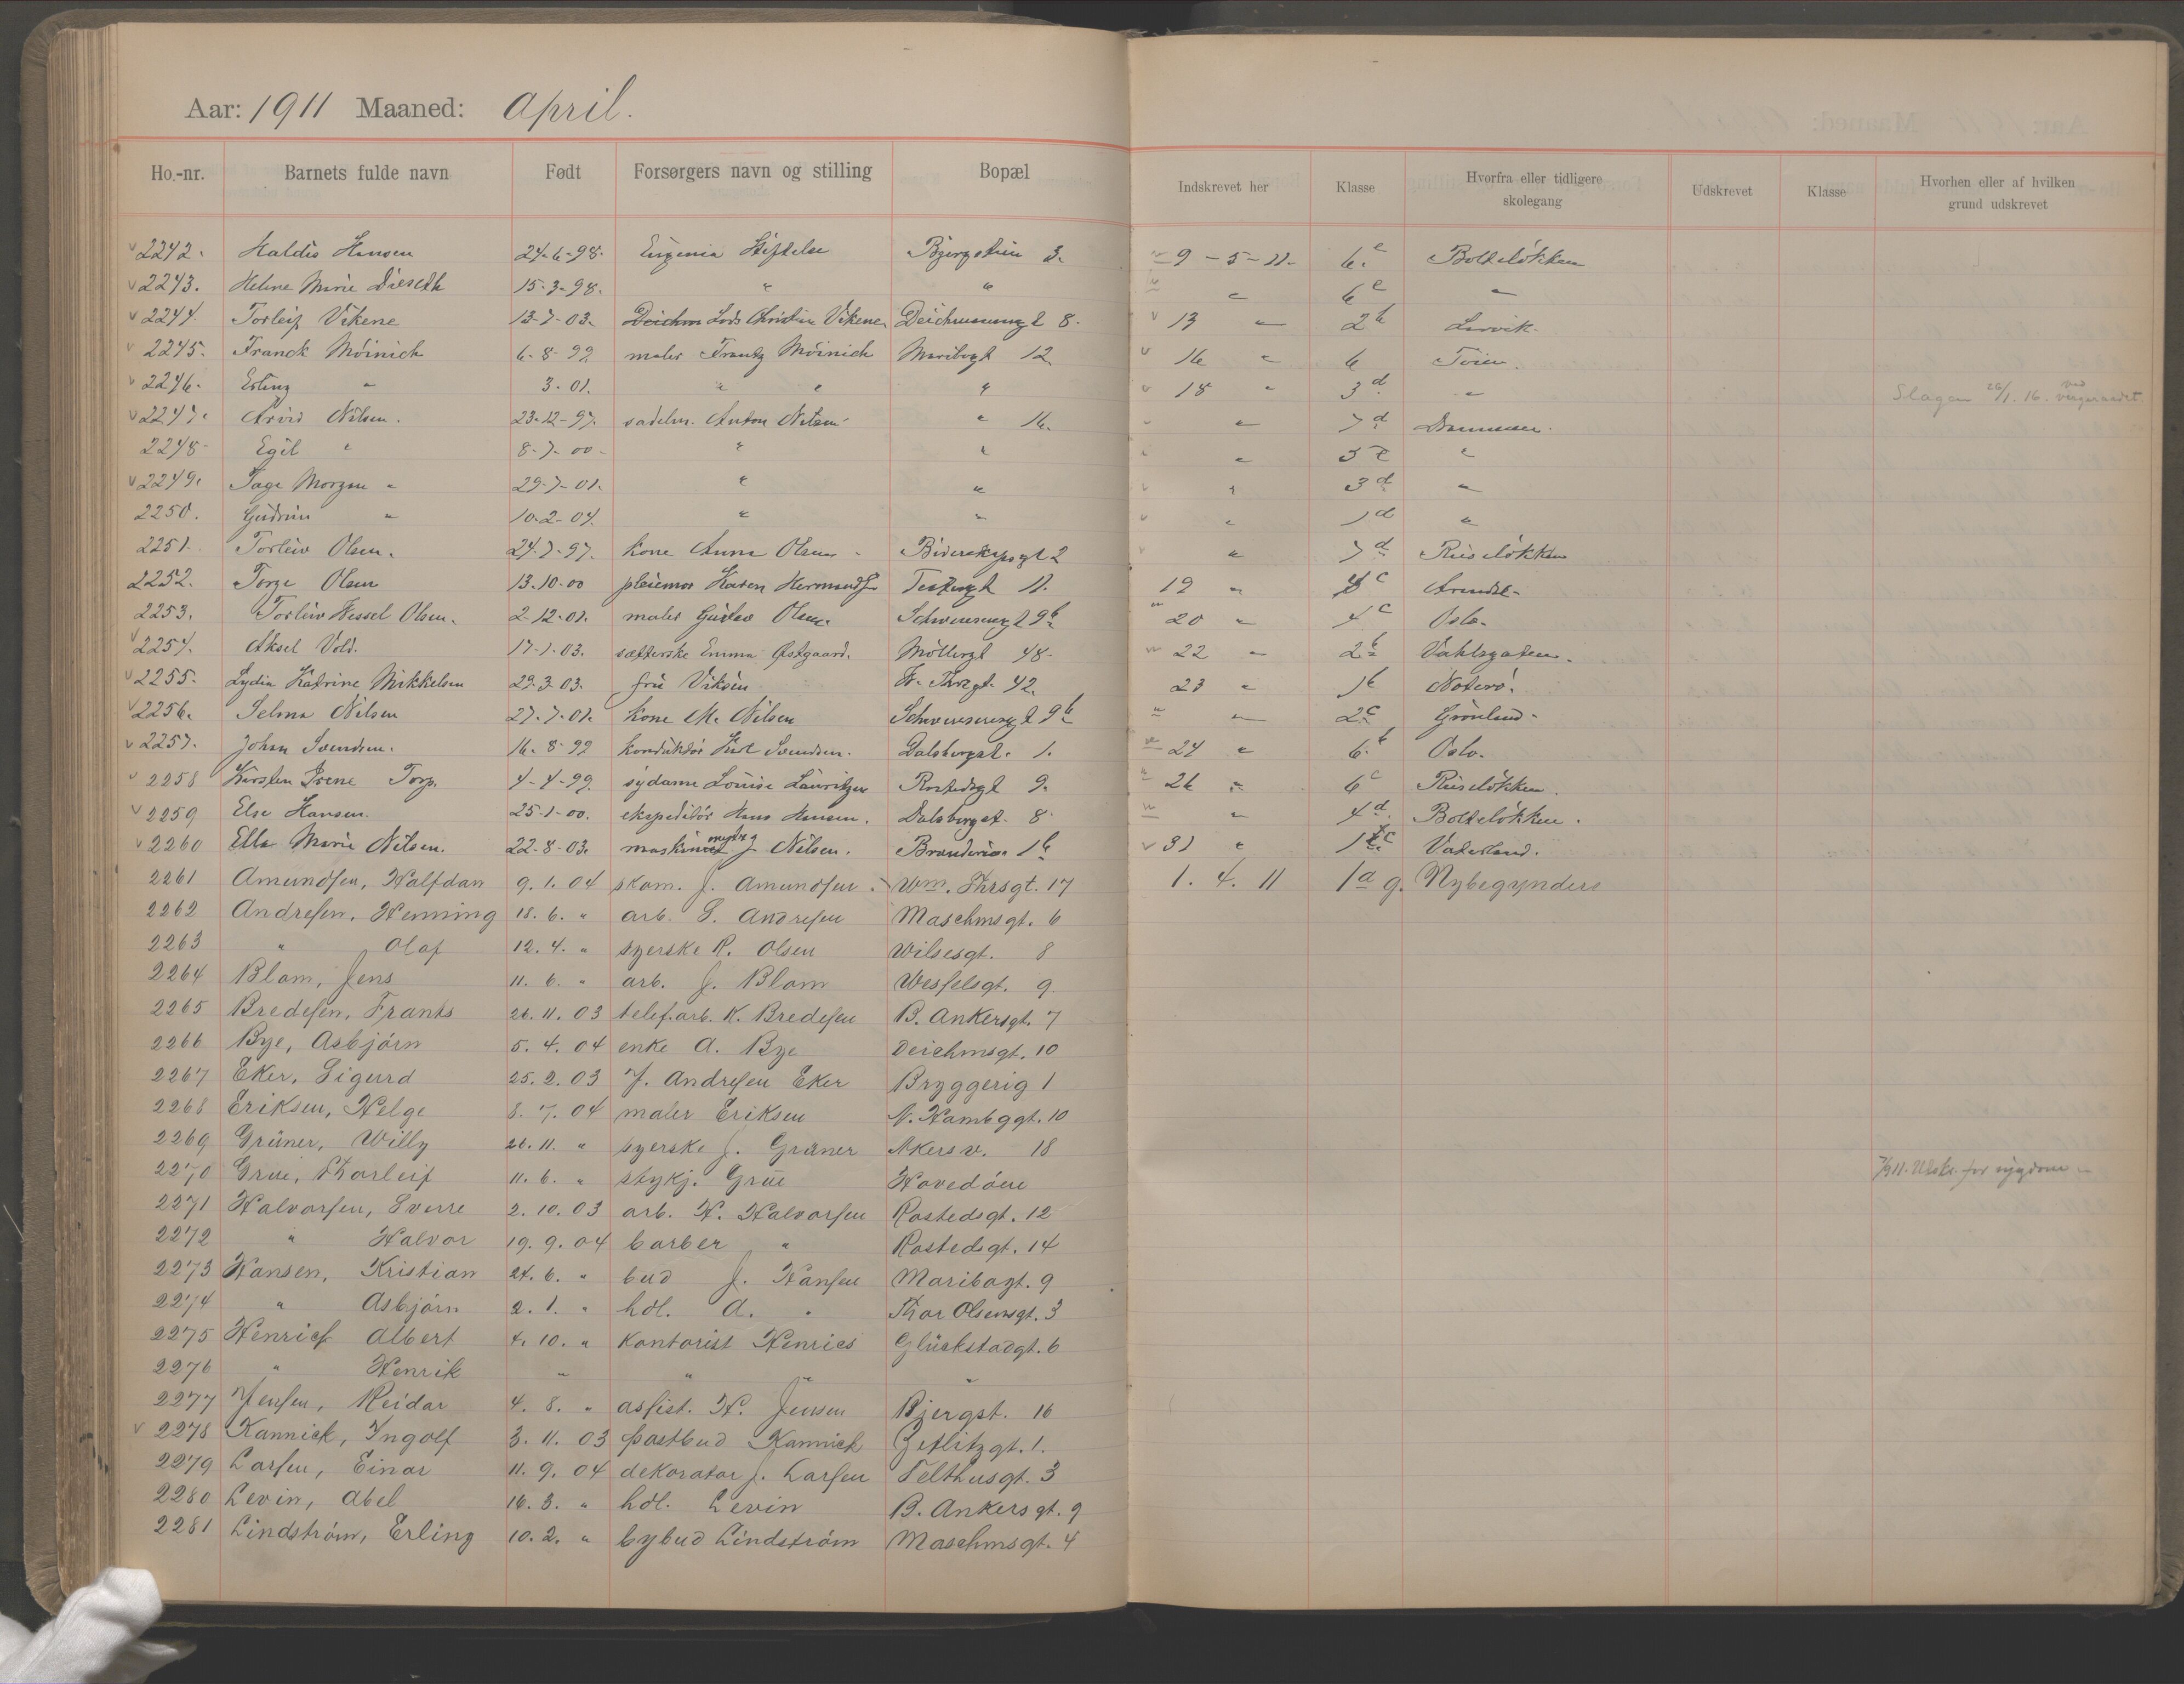 Aar: 1911 Maaned: April.
Ho.-nr. Barnets fulde navn Født Forsørgers navn og stilling Bopæl Indskrevet her Klasse Hvorfra eller tidligere skolegang Udskrevet Klasse Hvorhen eller af hvilken grund udskrevet
2242. Haldis Hansen 24-6-98. Eugenia Stiftelse Bjergstien 3. 9-5-11. 6e Bolteløkken
2243. Helene Marie 15-3-98. " " " 6e "
2244. Torleif Vikene 13-7-03. Christine Vikene Deichmansgt 8. 13 " 2b Larvik.
2245. Franck Möinich 6-8-99 maler Frantz Möinich Maribogt 12. 16 " 6 Tøien.
2246. Erling " 3-01. " " " 18 " 3d " Slagen 26/1. 16. ved vergeraadet
2247. Arvid Nilsen. 23-12-97. sadelm. Anton Nilsen " 16. " 7d Drammen.
2248. Egil " 8-7-00 " " " "
2249. Tage Morgan " 29-7-01. " " " 3d "
2250. Gudrun " 10-2-04. " " " 1d "
2251. Torleiv Olsen. 24-7-97. kone Anna Olsen 2 " 7d Ruseløkken
2252. Torge Olsen 13.10-00 pleiemor Karen 11. 19 " c Arendal.
2253. Torleiv Wessel Olsen. 2-12-01. maler Gustav Olsen. Schwensensgt 9b 20 " 4c Oslo.
2254. Aksel Vold. 17-1-03. sætterske Emma Østgaard. Möllergt 48. 22 " 2b Vahlsgaten.
2255. Lydia Katrine Mikkelsen 29-3-03. fru Viksen. 42. 23 " 1b Noterö.
2256. Selma Nilsen 27-7-01. kone M. Nilsen Schwensensgt 9b " 2c Grønland.
2257. Johan Svendsen. 16-8-99 konduktör Svendsen. Dalsbergst. 1. 24 " 6.b Oslo.
2258 Kirsten Irene Torp. 4-4-99. sydame Louise Lauritzen Rostedsgt 9. 26 " 6c Ruseløkken.
2259 Else Hansen. 25-1-00. ekspeditør Hans Hansen. Dalsbergst. 8. " 4d. Bolteløkken.
2260 Ella Marie Nilsen. 22-8-03. J Nilsen. 1b 31 " 1c Vaterland.
2261 Amundsen, Halfdan 9. 1. 04 skom. J. Amundsen. Wm. Thrsgt. 17 1. 4. 11 1a g. Nybegyndere
2262 Andresen, Henning 18. 6. " arb. S. Andresen Maschmsgt. 6
2263 " Olaf 12. 4. " syerske R. Olsen Wilsesgt. 8
2264 Blom, Jens 11. 6. " arb. J. Blom Wesselsgt. 9
2265 Bredesen, Frants 26. 11. 03 telef.arb. K. Bredesen B. Ankersgt. 7
2266 Bye, Asbjörn 5. 4. 04 enke A. Bye Deichmsgt. 10
2267 Eker, Sigurd 25. 2. 03 J. Andresen Eker Bryggerig 1
2268 Eriksen, Helge 8. 7. 04 maler Eriksen N. Hambggt. 10
2269 Grüner, Willy 26. 11. " syerske J. Grüner Akersv. 18
2270 Grue, Thorleif 11. 6. " stykj. Grue Hovedöen 7/911. Udskr. for sygdom
2271 Halvorsen, Sverre 2. 10. 03 arb. H. Halvorsen Rostedsgt. 12
2272 " Halvor 19. 9. 04 barber " Rostedsgt. 14
2273 Hansen, Kristian 24. 6. " bud J. Hansen Maribogt. 9
2274 " Asbjörn 2. 1. " hdl. A. " Thor Olsensgt. 3
2275 Henrics Albert 4. 10. " Kontorist Henrics Glückstadgt. 6
2276 " Henrik " " " "
2277 Jensen, Reidar 4. 8. " assist. H. Jensen Bjergst. 16
2278 Kannick, Ingolf 3. 11. 03 postbud Kannick Zetlitzgt. 1.
2279 Larsen, Einar 11. 9. 04 dekoratør J. Larsen Telthusgt. 3
2280 Levin, Abel 16. 3. " hdl. Levin B. Ankersgt. 9
2281 Lindström, Erling 10. 2. " bybud Lindström Maschmsgt. 4